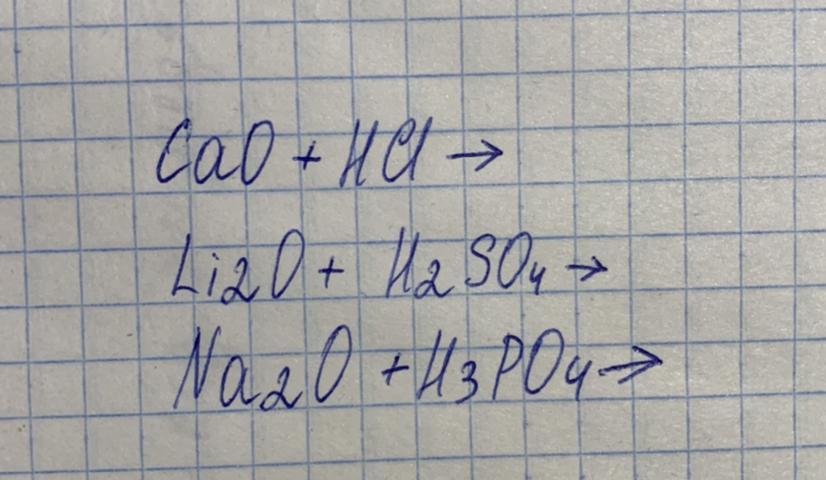 CaO + HCl →
Li₂O + H₂SO₄ →
Na₂O + H₃PO₄ →